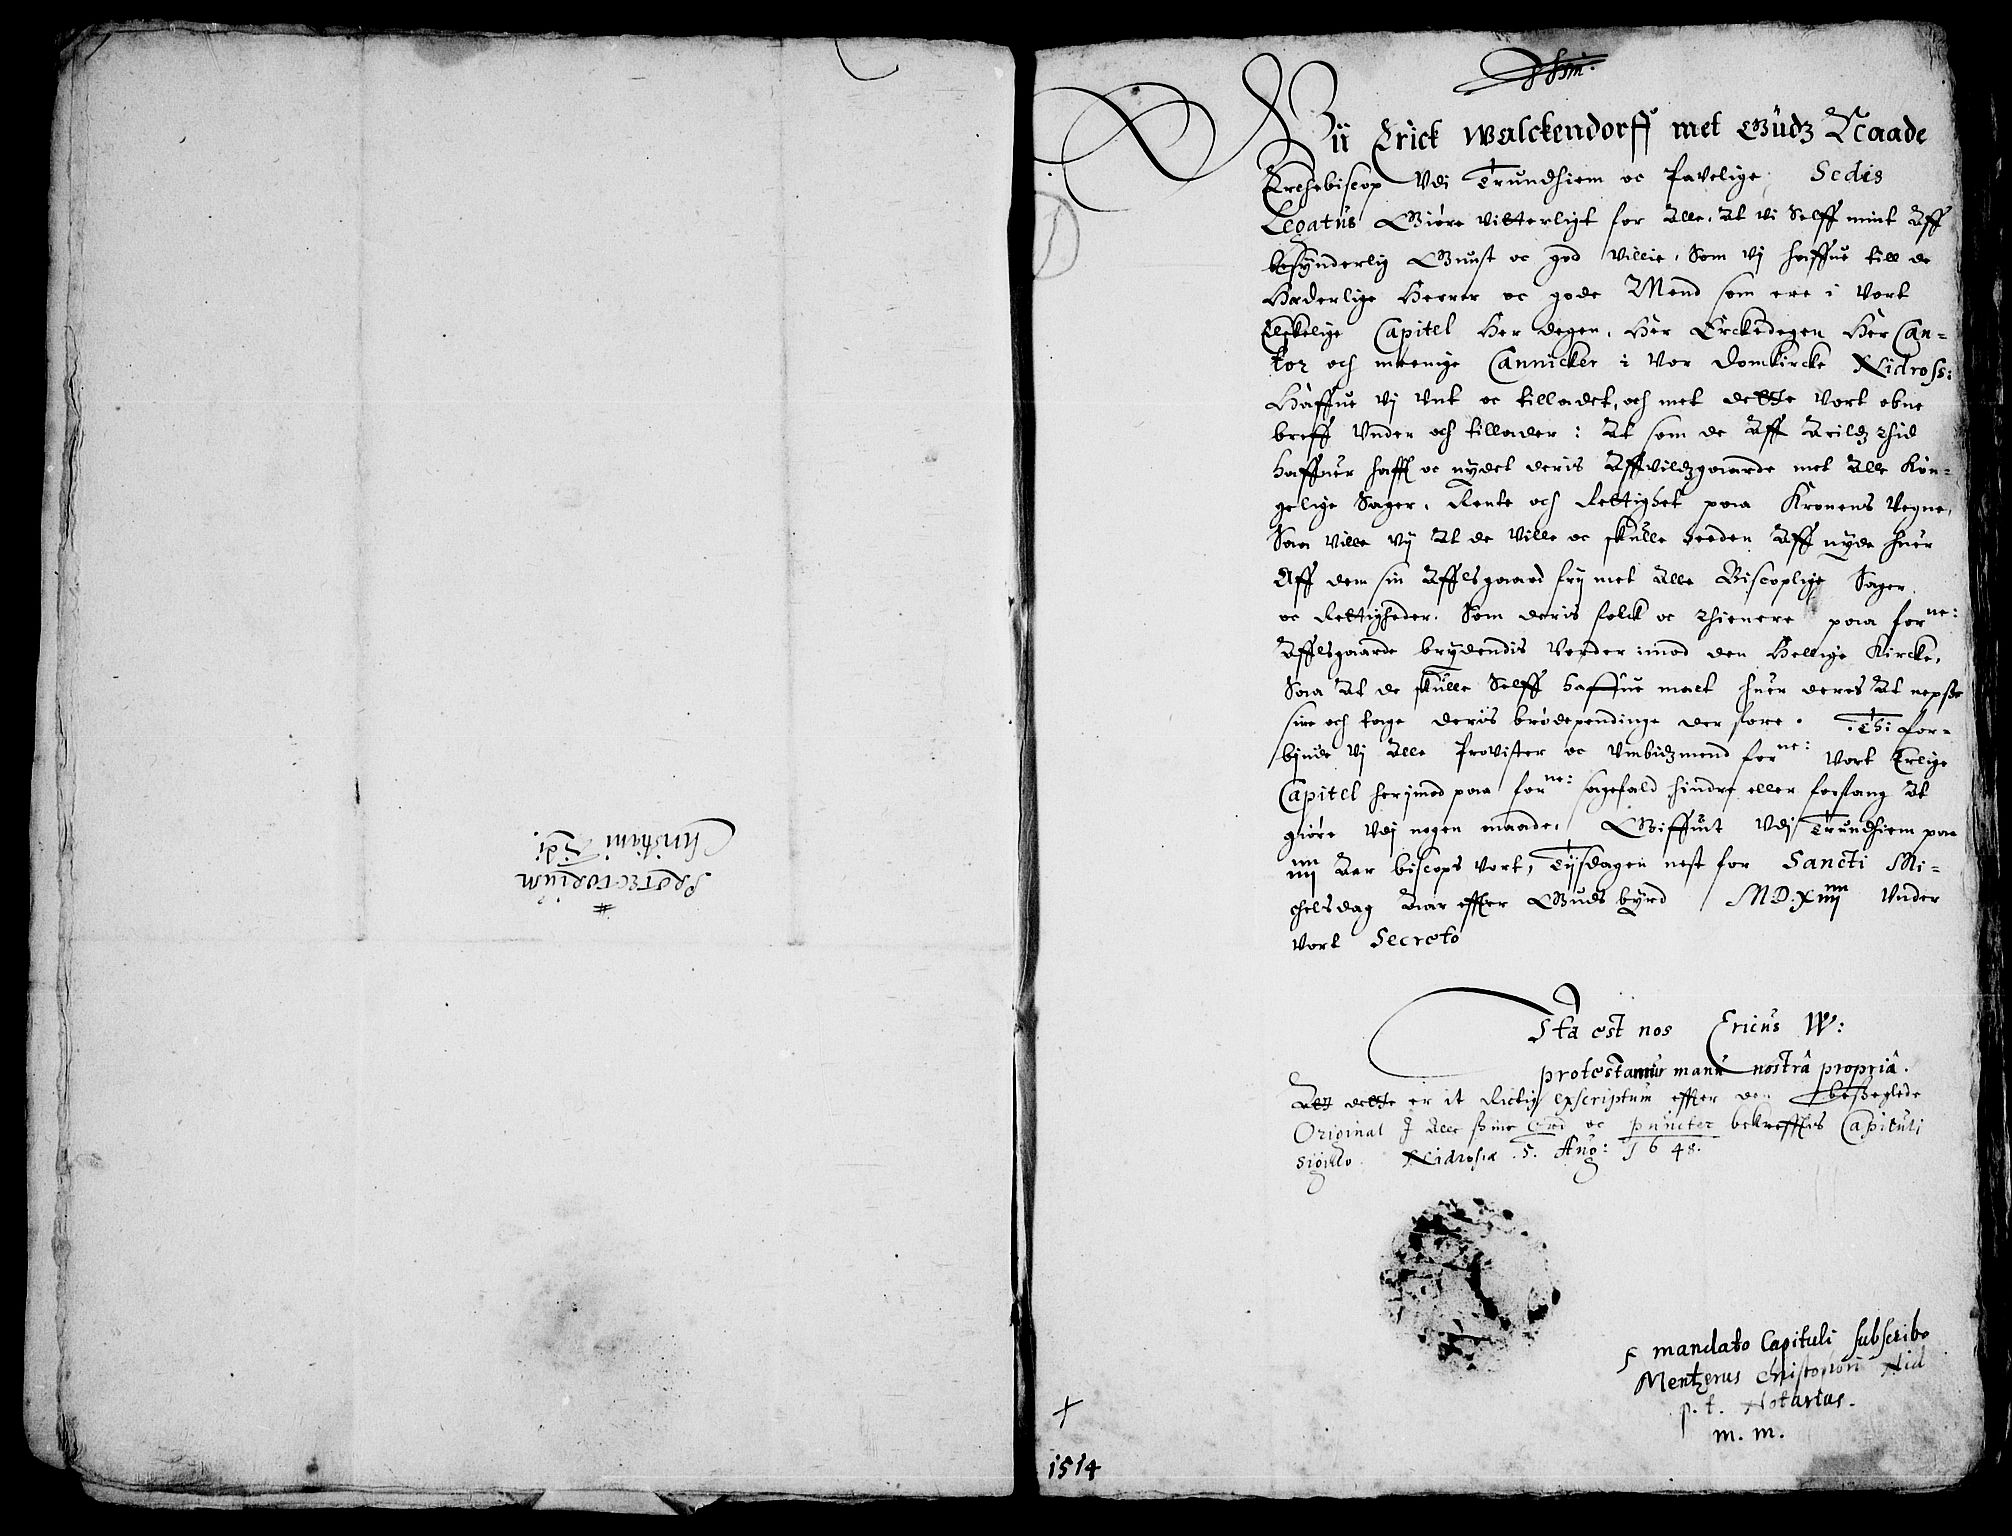 PROTECTORIUM
Christiani 3di.
Wii Erick Walckendorff met Gudz Naade
Erchebiscop Vdi Trundhiem oc Pavelige Sedis
Legatus Giøre vitterligt for Alle, At vi Selff mint Aff
besynderlig Gunst oc god Villie, Som vij haffue till de
Hæderlige Herrer oc gode Mend som ere i Vort
Elskelige Capitel Her degen, Her Erckedegen Her Can-
tor och meenige Cannicker i Vor Domkircke Nidross:
Haffue vij Vnt oc tilladet, och met dette Vort obne
breff Vnder och tillader: At som de Aff Arildz thid
haffuer hafft oc nydet deris Affvildzgaarde met Alle Kon-
gelige Sager, Rente och Rettighet paa Kronens Vegne,
Saa ville vij At de Ville oc skulle heeden Aff nyde huer
Aff dem sin Afflsgaard frij met Alle Biscoplige Sager
oc Rettigheder, Som deris folck oc thienere paa for ne:
Afflsgaarde brydendis Vorder imod den Hellige Kircke,
Saa At de skulle Selff haffue mact huer deres At nepsse
sine och tage deris brødependinge der fore. Thi for-
byude vj Alle Provister oc Vmbudzmend for ne: Vort Erlige
Capitel herjmod paa for ne: sagefald hindre eller forfang At
giøre Vdj nogen maade. Giffuit Vdj Trundhiem paa
iiij Aar biscops Vort, Tijsdagen nest for Sancti Mi-
chelsdag Aar effter Guds byrd MD.xiiij Vnder
Vort Secreto
Ita est nos Ericus W:
protestamur manu nostrâ propriâ.
At dette er it Rictig exscriptum effter den besseglede
Original I Alle sine Ord oc puncter bekrefftis Capituli
Sigillo. Nidrosiæ. 5. Aug: 1648.
E mandato Capituli subscribo
Mentzerus Christophori Nid
p. t. Notarius.
m. m.
1514